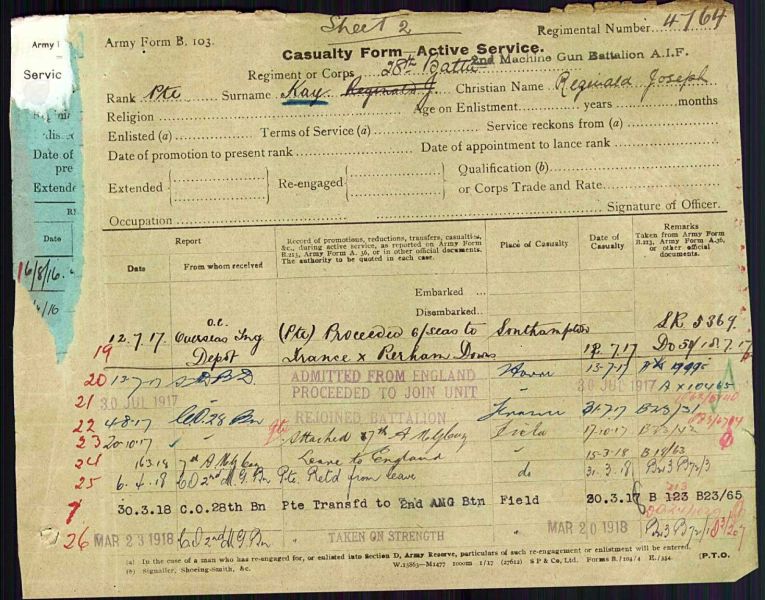 Sheet 2
Army Form B. 103.
Regimental Number 4764
Casualty Form—Active Service.
Regiment or Corps 28th Battn 2nd Machine Gun Battalion A.I.F.
Rank Pte Surname Kay Reginald J. Christian Name Reginald Joseph
Religion Age on Enlistment years months
Enlisted (a) Terms of Service (a) Service reckons from (a)
Date of promotion to present rank Date of appointment to lance rank
Extended Re-engaged Qualification (b)
or Corps Trade and Rate
Occupation Signature of Officer.
Army
Servic
Date of
pre
Extende
Date
16/8/16
/16
Report
Date From whom received
Record of promotions, reductions, transfers, casualties, &c., during active service, as reported on Army Form B.213, Army Form A. 36, or in other official documents. The authority to be quoted in each case.
Place of Casualty
Date of Casualty
Remarks
Taken from Army Form B.213, Army Form A.36, or other official documents.
Embarked
Disembarked
19 12.7.17. O.C. Overseas Tng Depot (Pte) Proceeded o/seas to France x Perham Downs Southampton 12.7.17 SR 5369.
20 ADMITTED FROM ENGLAND Havre 13.7.17
21 30 JUL 1917 PROCEEDED TO JOIN UNIT " 30 JUL 1917 A x 10465
22 4.8.17 C.O. 28 Bn REJOINED BATTALION France 31.7.17
23 20.10.17 " Attached 7th A M G Coy Field 17.10.17
24 16.3.18 7th A M G Coy Leave to England 15.3.18
25 6.4.18 CO 2nd M.G. Bn Pte. Retd from leave do 31.3.18
30.3.18 C.O.28th Bn Pte Transfd to 2nd AMG Btn Field 20.3.18 B 123 B23/65
26 MAR 23 1918 CO 2nd M G Bn " TAKEN ON STRENGTH " MAR 20 1918
(a) In the case of a man who has re-engaged for, or enlisted into Section D, Army Reserve, particulars of such re-engagement or enlistment will be entered.
(b) Signaller, Shoeing-Smith, &c.
W.13863—M1477 1000m 1/17 (27612) S P & Co., Ltd. Forms B./104/4 E./354. [P.T.O.